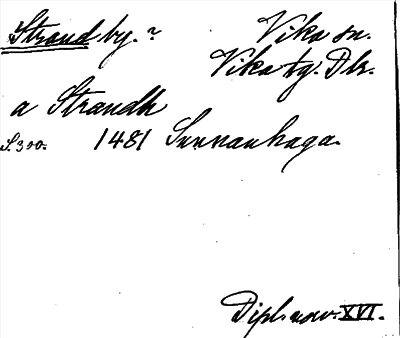 Strand by.?
Vika sn.
Vika tg. Dlr.
a Strandh
S. 300. 1481 Sunnanhaga.
Dipl. norv. XVI.